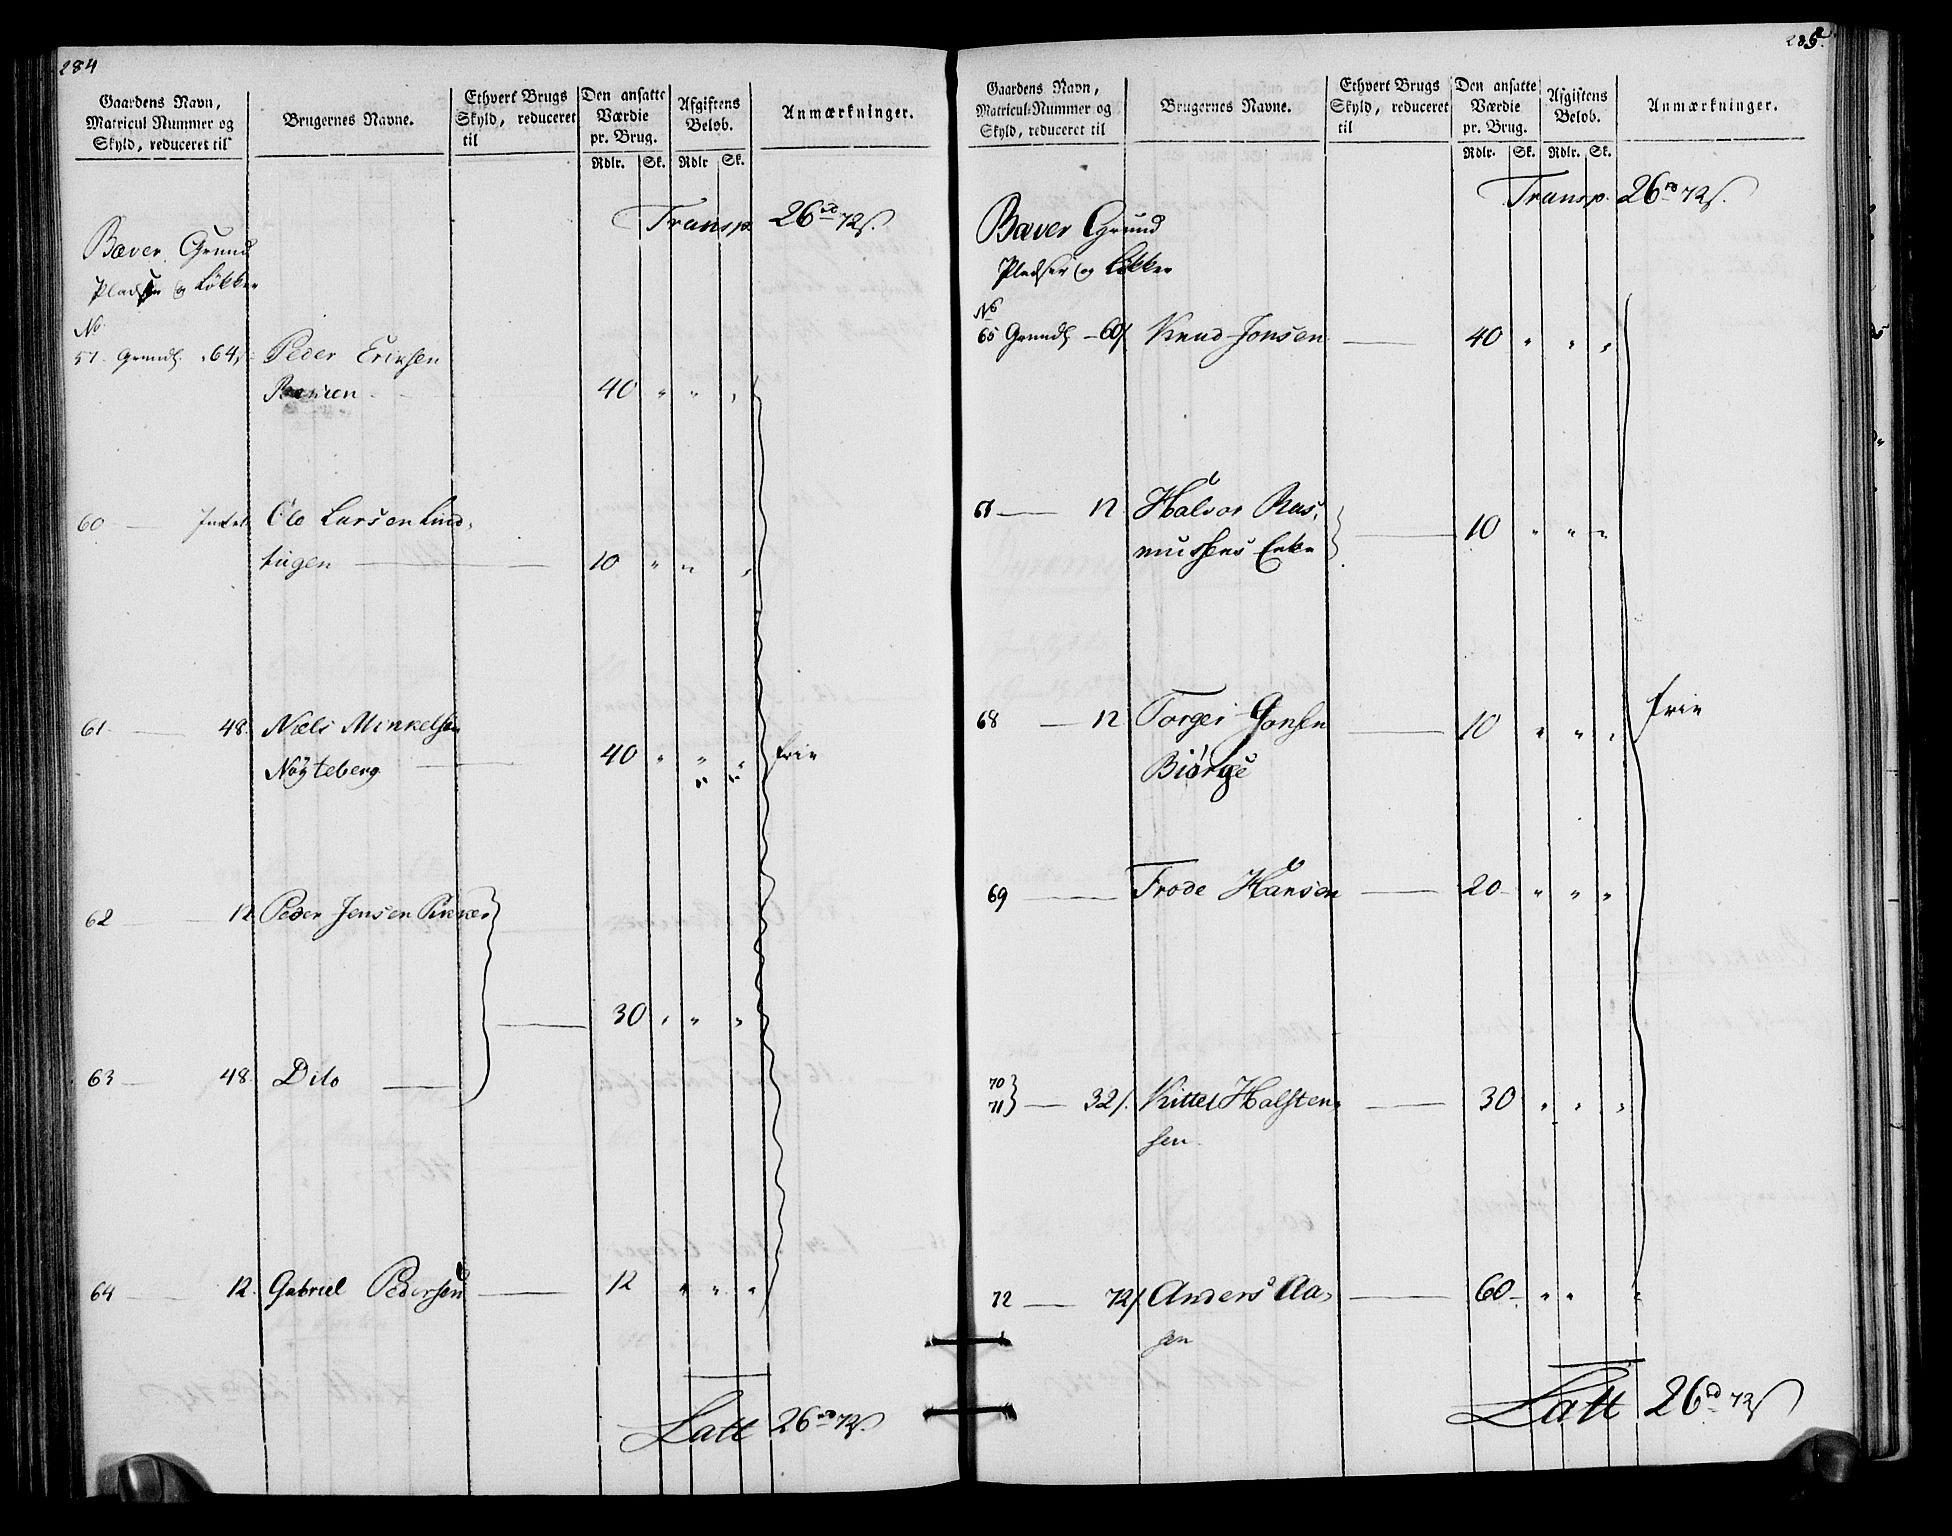 284
Gaardens Navn,
Matricul Nummer og
Skyld, reduceret til
Brugernes Navne.
Ethvert Brugs
Skyld, reduceret
til
Den ansatte
Værdie
pr. Brug.
Rdlr. Sk.
Afgiftens
Beløb.
Rdlr Sk.
Anmærkninger.
Transp. 26 rd 72 s.
Bæver Grund
Pladser og Løkker
No
57. Grundl. 64 Peder Eriksen
40 " " "
60 Ole Larsen Lind-
tugen 10 " " "
61 48. Niels Minkelsen
Nøyteberg 40 " " " frie
62 12 Peder Jensen
30 " " "
63 48. Dito
64 12. Gabriel Pedersen 12 " " "
Latt 26 rd 72 s.
285.
Gaardens Navn,
Matricul-Nummer og
Skyld, reduceret til
Brugernes Navne.
Ethvert Brugs
Skyld, reduceret
til
Den ansatte
Værdie
pr. Brug.
Rdlr. Sk.
Afgiftens
Beløb.
Rdlr. Sk.
Anmærkninger.
Transp. 26 rd 72 s.
Bæver Grund
Pladser og Løkker
No
65 Grundl. 60/ Knud Jonsen 40 " " "
12 Halvor Ras-
mussens Enke 10 " " "
68 12 Torger Jonsen 10 " " " frie
Biørge
69 Frode Hansen 20 " " "
70
71 32/. Kittel Halsten- 30 " " "
sen.
72 72/ Anders Aa- 60 " " "
sen
Latt 26 rd 72 s